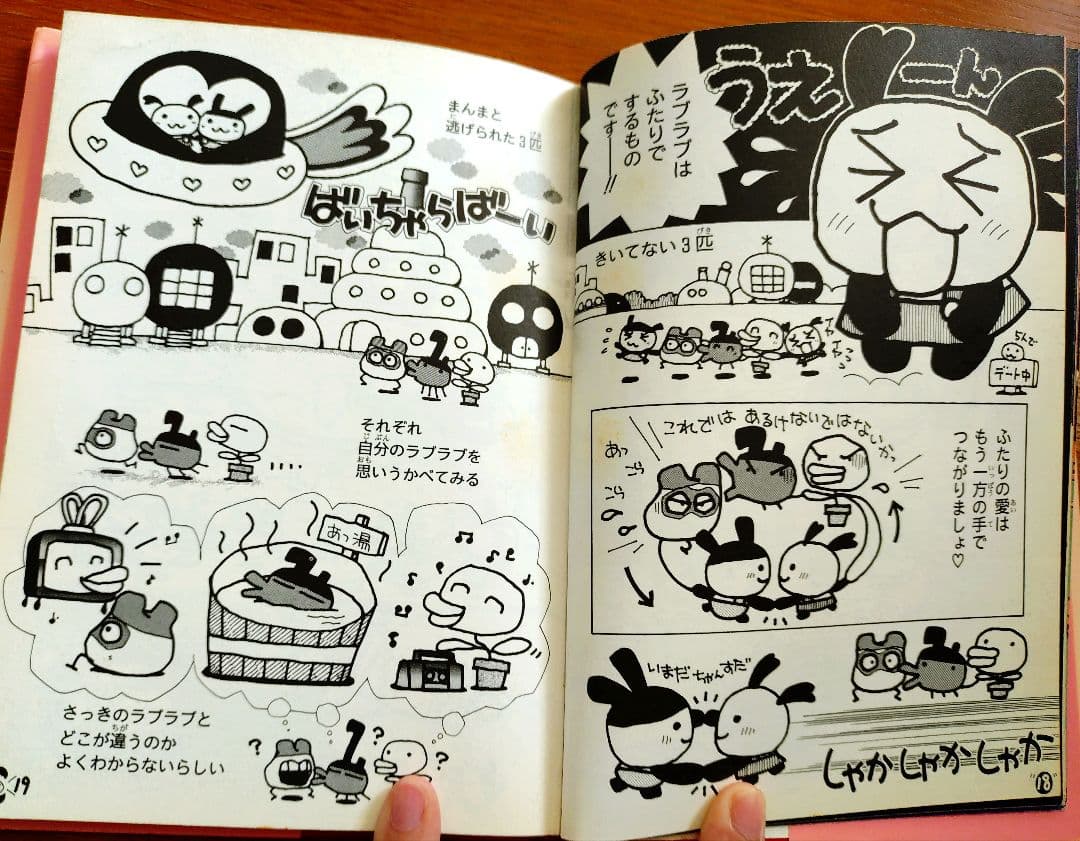 うえーん
ラブラブは
ふたりで
するもの
です――!!
きいてない3匹
らんで
デート中
ふたりの愛は
もう一方の手で
つながりましょ♡
これでは あるけないではないかっ
あっ
こら
こら
いまだちゃんすだ
しゃかしゃかしゃか
18
まんまと
逃げられた3匹
ばいちゃらばーい
それぞれ
自分のラブラブを
思いうかべてみる
あっ湯
さっきのラブラブと
どこが違うのか
よくわからないらしい
? ? ?
19